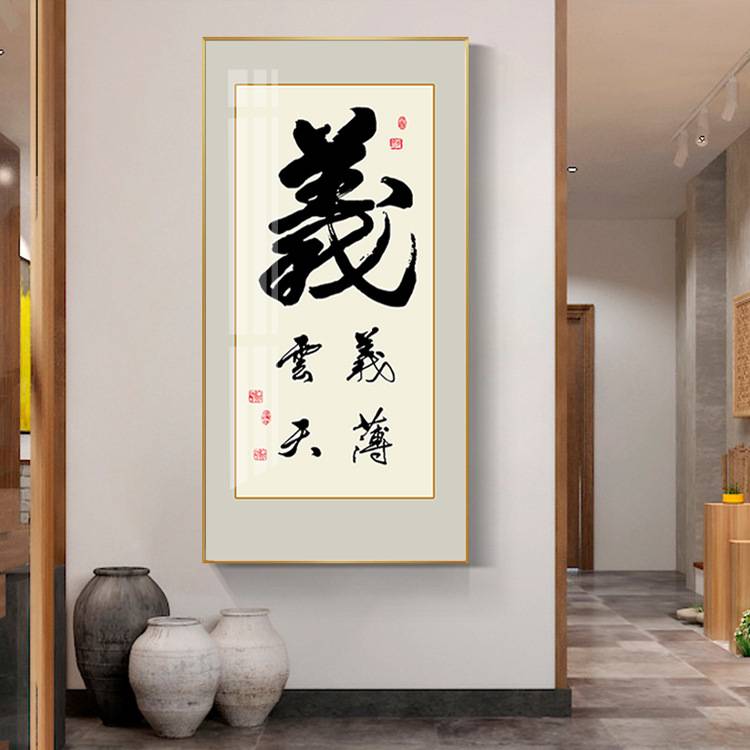 義
義薄
雲天